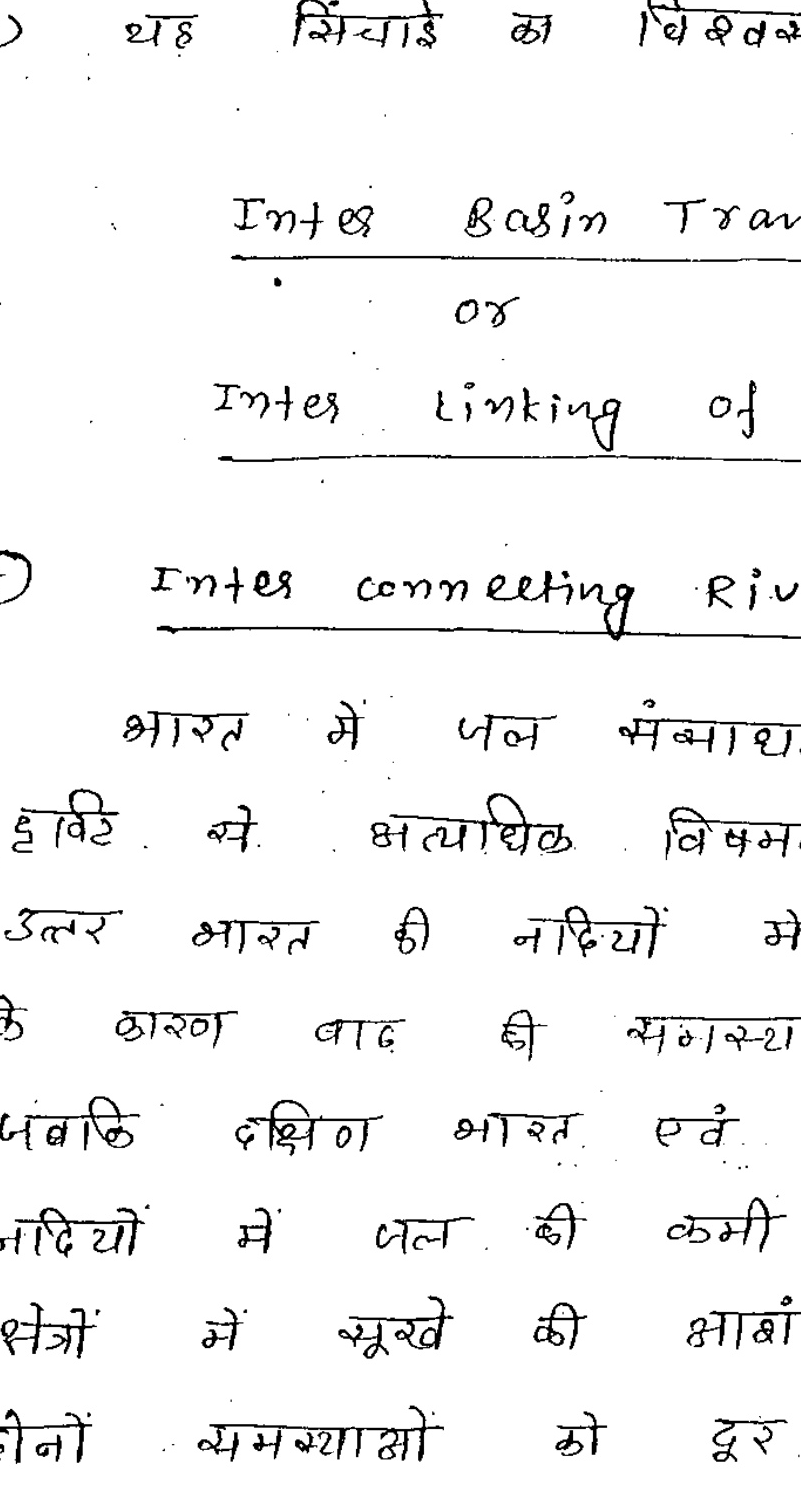 ) यह सिंचाई का विश्वस
Inter Basin Tran
or
Inter Linking Of
Inter connecting Riv
भारत में जल संसाध
दृष्टि से अत्यधिक विषम
उत्तर भारत की नदियों में
के कारण बाढ़ की समस्या
जबकि दक्षिण भारत एवं
नदियों में जल की कमी
क्षेत्रों में सूखे की आशं
दोनों समस्याओं को दूर